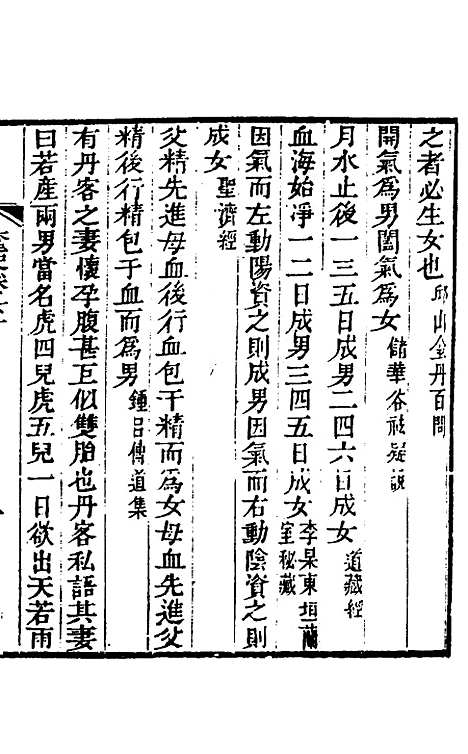 之者必生女也 邱山金丹百問
開氣爲男闔氣爲女 儲華谷祛疑說
月水止後一三五日成男二四六日成女 道藏經
血海始淨一二日成男三四五日成女 李杲東垣蘭室秘藏
因氣而左動陽資之則成男因氣而右動陰資之則
成女 聖濟經
父精先進母血後行血包于精而爲女母血先進父
精後行精包于血而爲男 鍾呂傳道集
有丹客之妻懷孕腹甚巨似雙胎也丹客私語其妻
曰若産兩男當名虎四兒虎五兒一日欲出天若雨